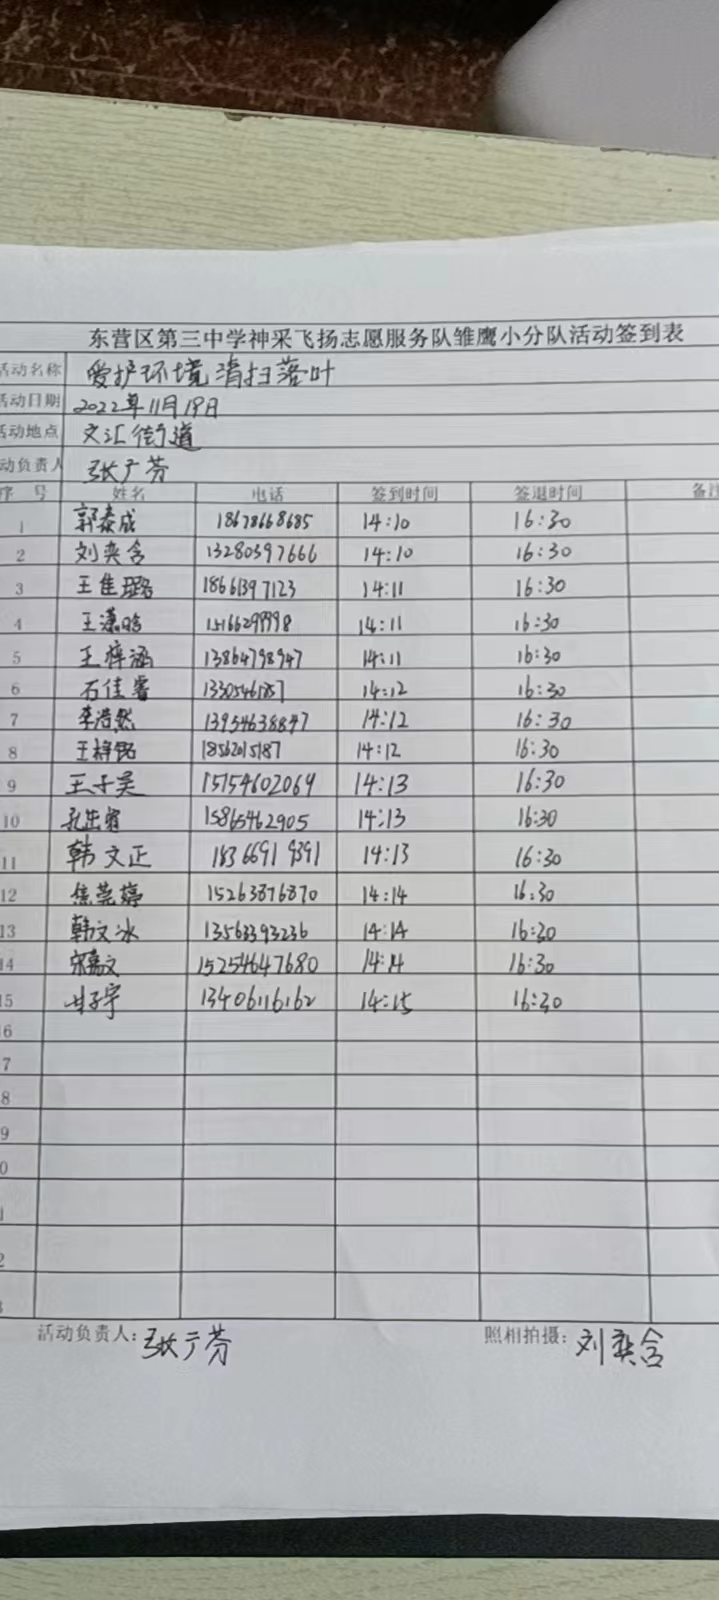 东营区第三中学神采飞扬志愿服务队雏鹰小分队活动签到表
活动名称 爱护环境 清扫落叶
活动日期 2022年11月19日
活动地点 文汇街道
动负责人 张广芬
序 号 姓名 电话 签到时间 签退时间 备注
1 郭泰成 18678668685 14:10 16:30
2 刘奕含 13280597666 14:10 16:30
3 王佳璐 18661397123 14:11 16:30
4 王潇晗 14:11 16:30
5 王梓涵 13864798947 14:11 16:30
6 石佳睿 14:12 16:30
7 李浩然 13954638847 14:12 16:30
8 王梓铭 18562015187 14:12 16:30
9 王子昊 15154602069 14:13 16:30
10 15865462905 14:13 16:30
11 韩文正 18366919391 14:13 16:30
12 焦莞婷 15263876870 14:14 16:30
13 韩文冰 13563393236 14:14 16:30
14 宋嘉文 15254647680 14:14 16:30
15 甘子宇 13406116162 14:15 16:30
6
7
8
9
0
1
2
3
活动负责人: 张广芬 照相拍摄: 刘奕含